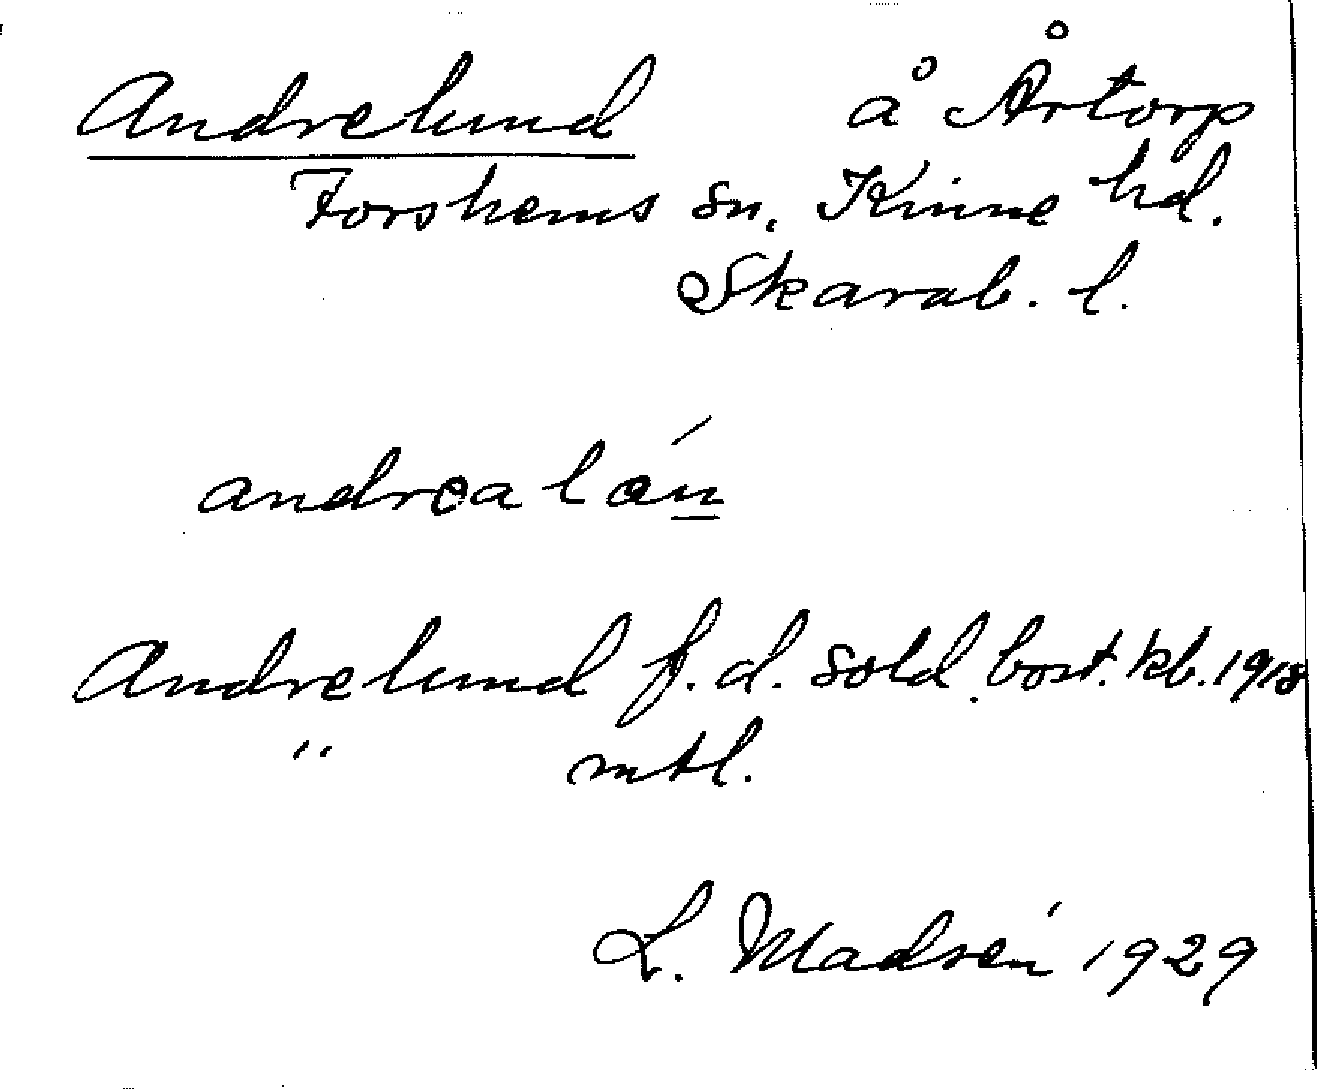 Andrelund å Årtorp
Forshems sn. Kinne hd.
Skarab. l.
andrea lan
Andrelund f.d. sold. bost. kb. 1918
" mtl.
L. Madsén 1929